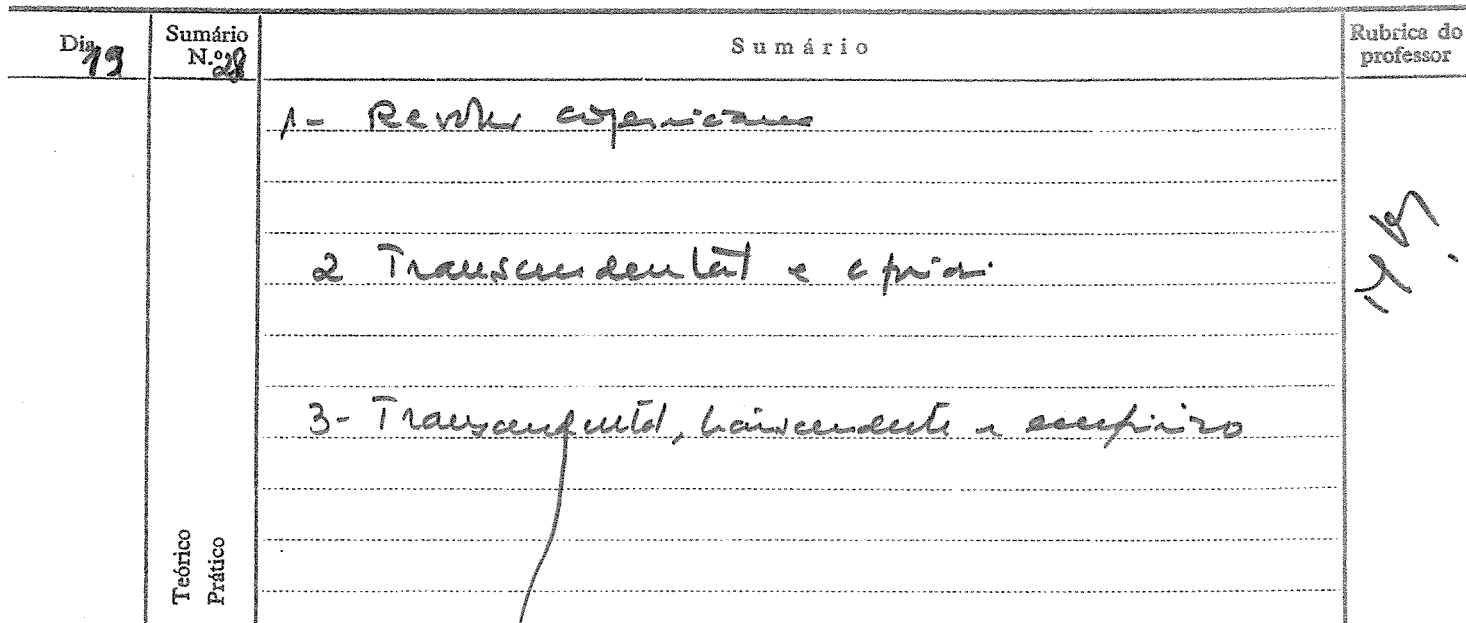 Dia 19
Sumário N.º 28
Sumário
Rubrica do professor
1- copernicana
2 Transcendental e a priori
3- Transcendental, transcendente e empírico
Teórico
Prático